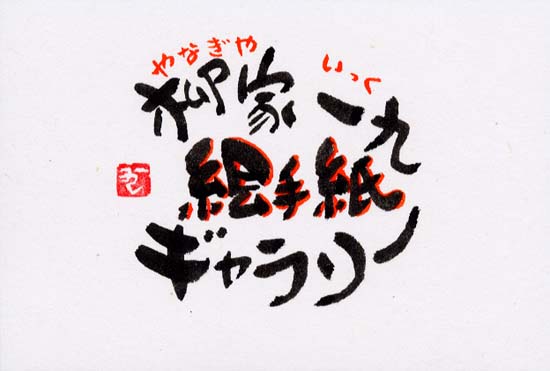 やなぎや いっく
柳家一九
絵手紙
ギャラリー